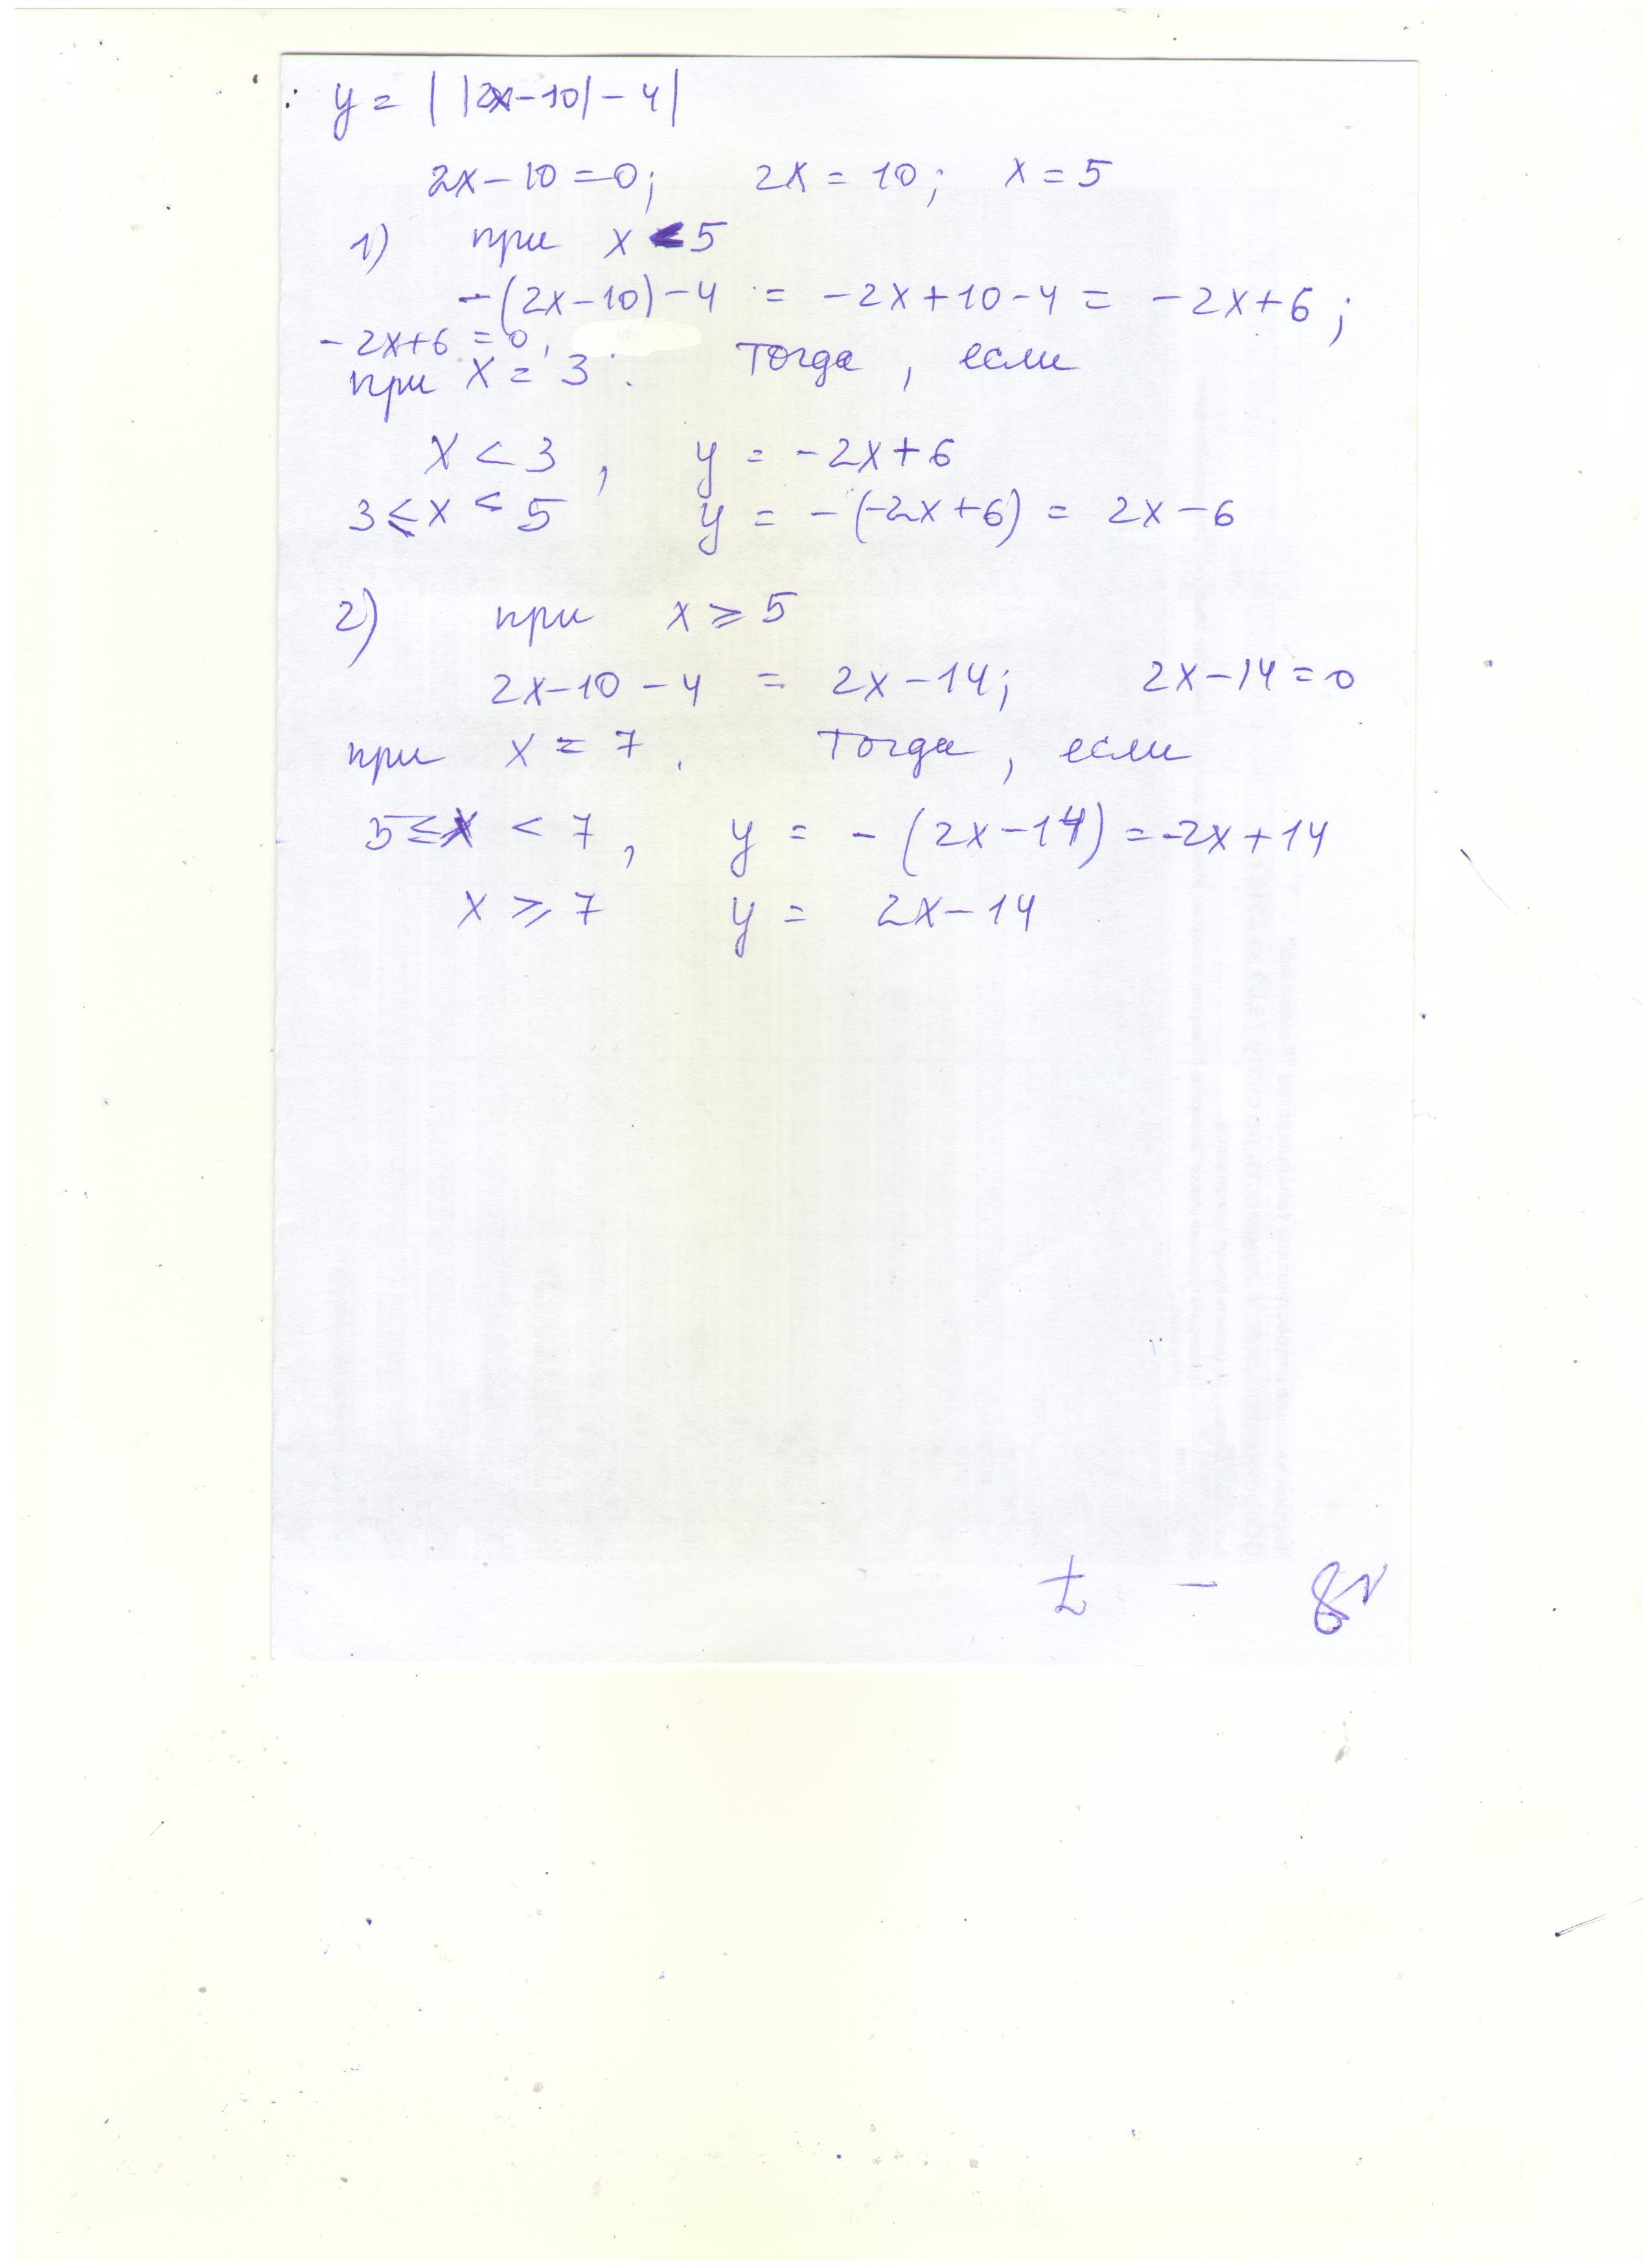 y = | |2x-10| - 4|
2x-10 = 0; 2x = 10; x = 5
1) при x < 5
-(2x-10)-4 = -2x+10-4 = -2x+6;
-2x+6 = 0,
при x = 3. Тогда, если
x < 3, y = -2x+6
3 ≤ x < 5 y = -(-2x+6) = 2x-6
2) при x ≥ 5
2x-10-4 = 2x-14; 2x-14 = 0
при x = 7. Тогда, если
5 ≤ x < 7, y = -(2x-14) = -2x+14
x ≥ 7 y = 2x-14